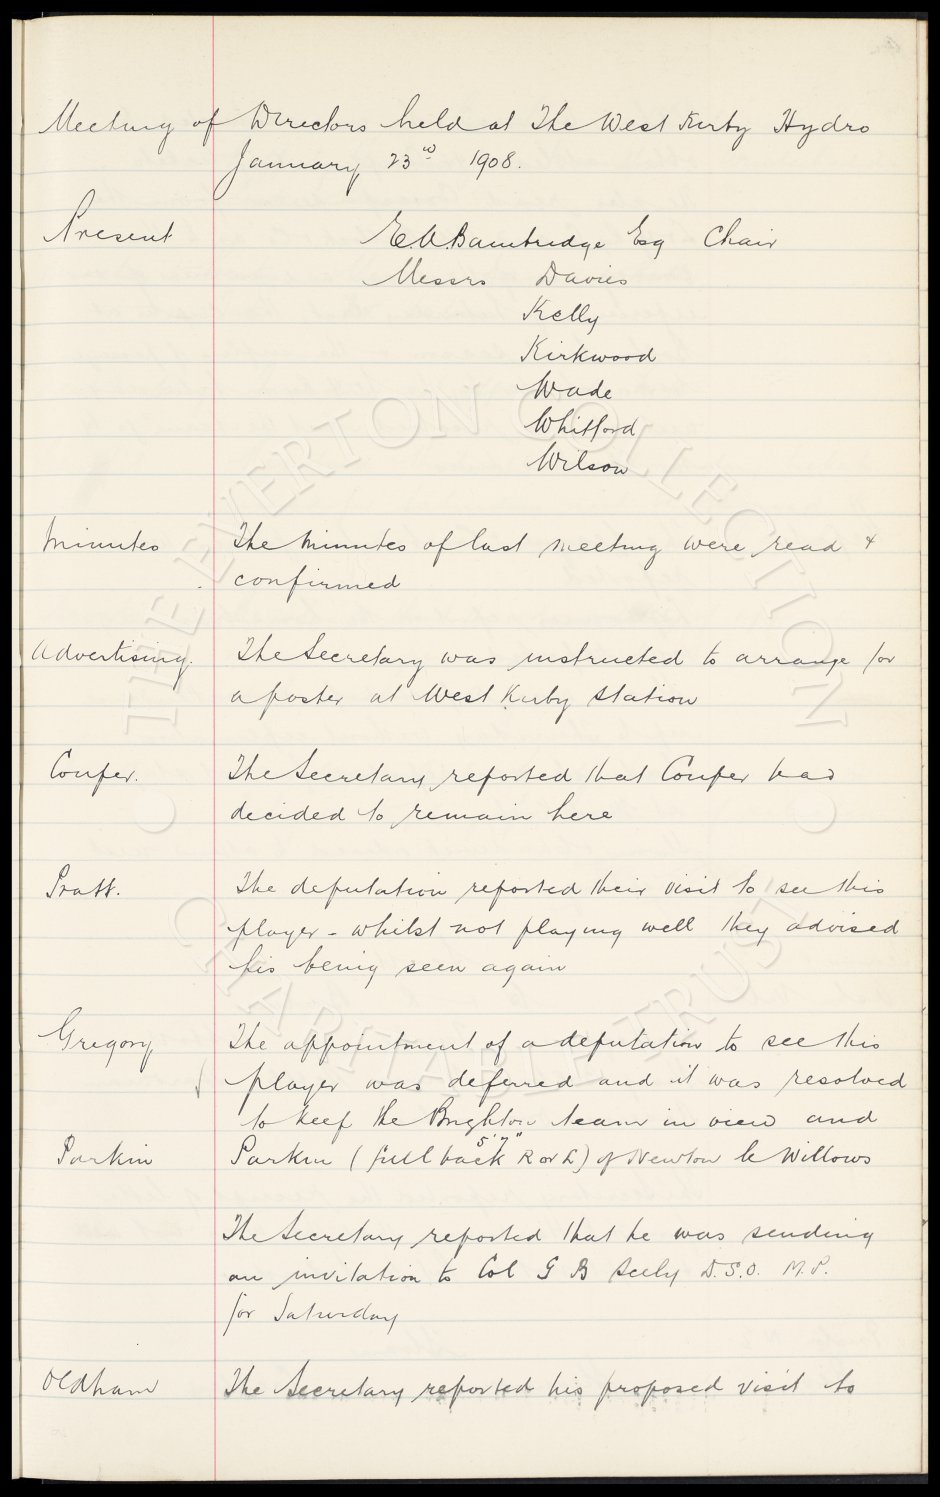 Meeting of Directors held at The West Kirby Hydro
January 23rd 1908.
Present E.A. Bainbridge Esq Chair
Messrs Davies
Kelly
Kirkwood
Wade
Whitford
Wilson
Minutes The Minutes of last meeting were read &
confirmed
Advertising. The Secretary was instructed to arrange for
a poster at West Kirby Station
Couper. The Secretary reported that Couper had
decided to remain here
Pratt. The deputation reported their visit to see this
player - whilst not playing well they advised
his being seen again
Gregory The appointment of a deputation to see this
player was deferred and it was resolved
to keep the Brighton team in view and
5'7"
Parkin Parkin (full back R or L) of Newton le Willows
The Secretary reported that he was sending
an invitation to Col G B Seely D.S.O. M.P.
for Saturday
Oldham The Secretary reported his proposed visit to
THE EVERTON COLLECTION
CHARITABLE TRUST